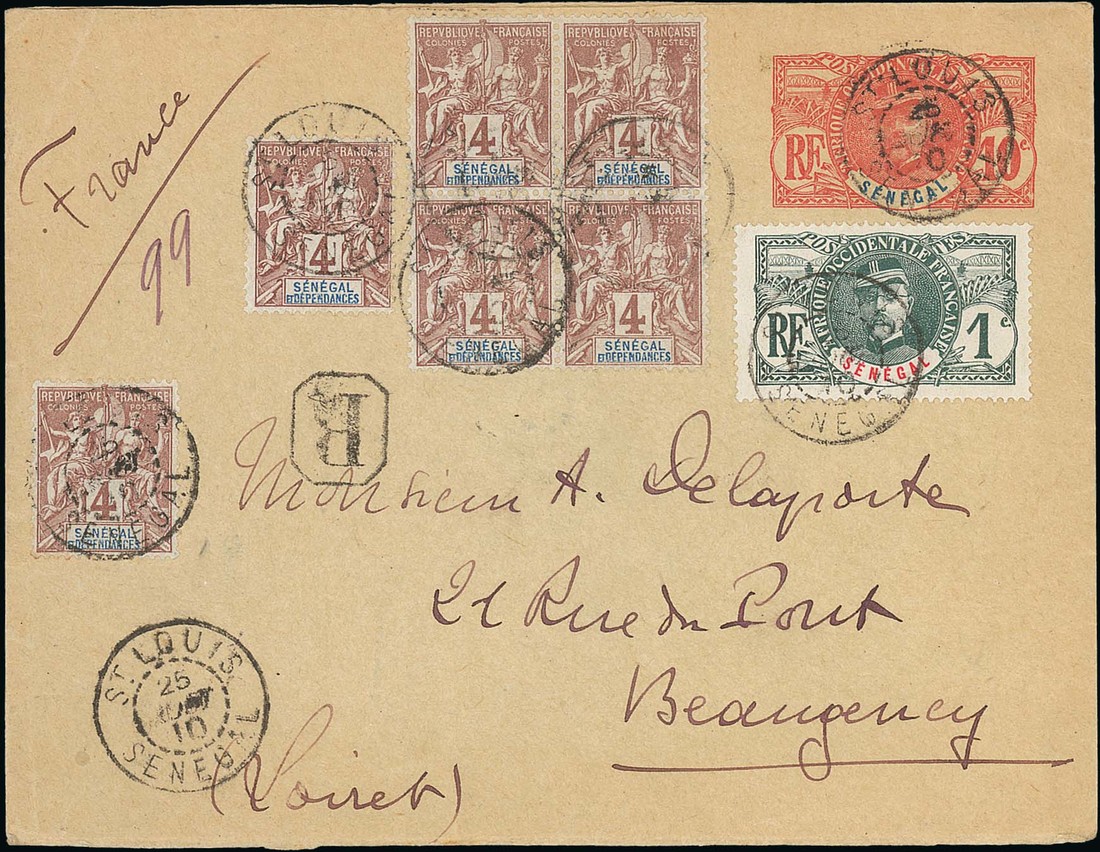 France
99
REPVBLIQVE FRANÇAISE
COLONIES POSTES
4
SÉNÉGAL
ET DÉPENDANCES
REPVBLIQVE FRANÇAISE
COLONIES POSTES
4
SÉNÉGAL
ET DÉPENDANCES
POSTES
AFRIQUE OCCIDENTALE
RF 10 c
SÉNÉGAL
ST LOUIS
REPVBLIQVE FRANÇAISE
COLONIES POSTES
4
SÉNÉGAL
ET DÉPENDANCES
4
SÉNÉGAL
ET DÉPENDANCES
4
SÉNÉGAL
ET DÉPENDANCES
POSTES
AFRIQUE OCCIDENTALE FRANÇAISE
RF 1 c
SÉNÉGAL
SENEGAL
REPVBLIQVE FRANÇAISE
COLONIES POSTES
4
SÉNÉGAL
ET DÉPENDANCES
R
Monsieur A. Delaporte
21 Rue du Pont
Beaugency
(Loiret)
ST LOUIS
25
10
SENEGAL